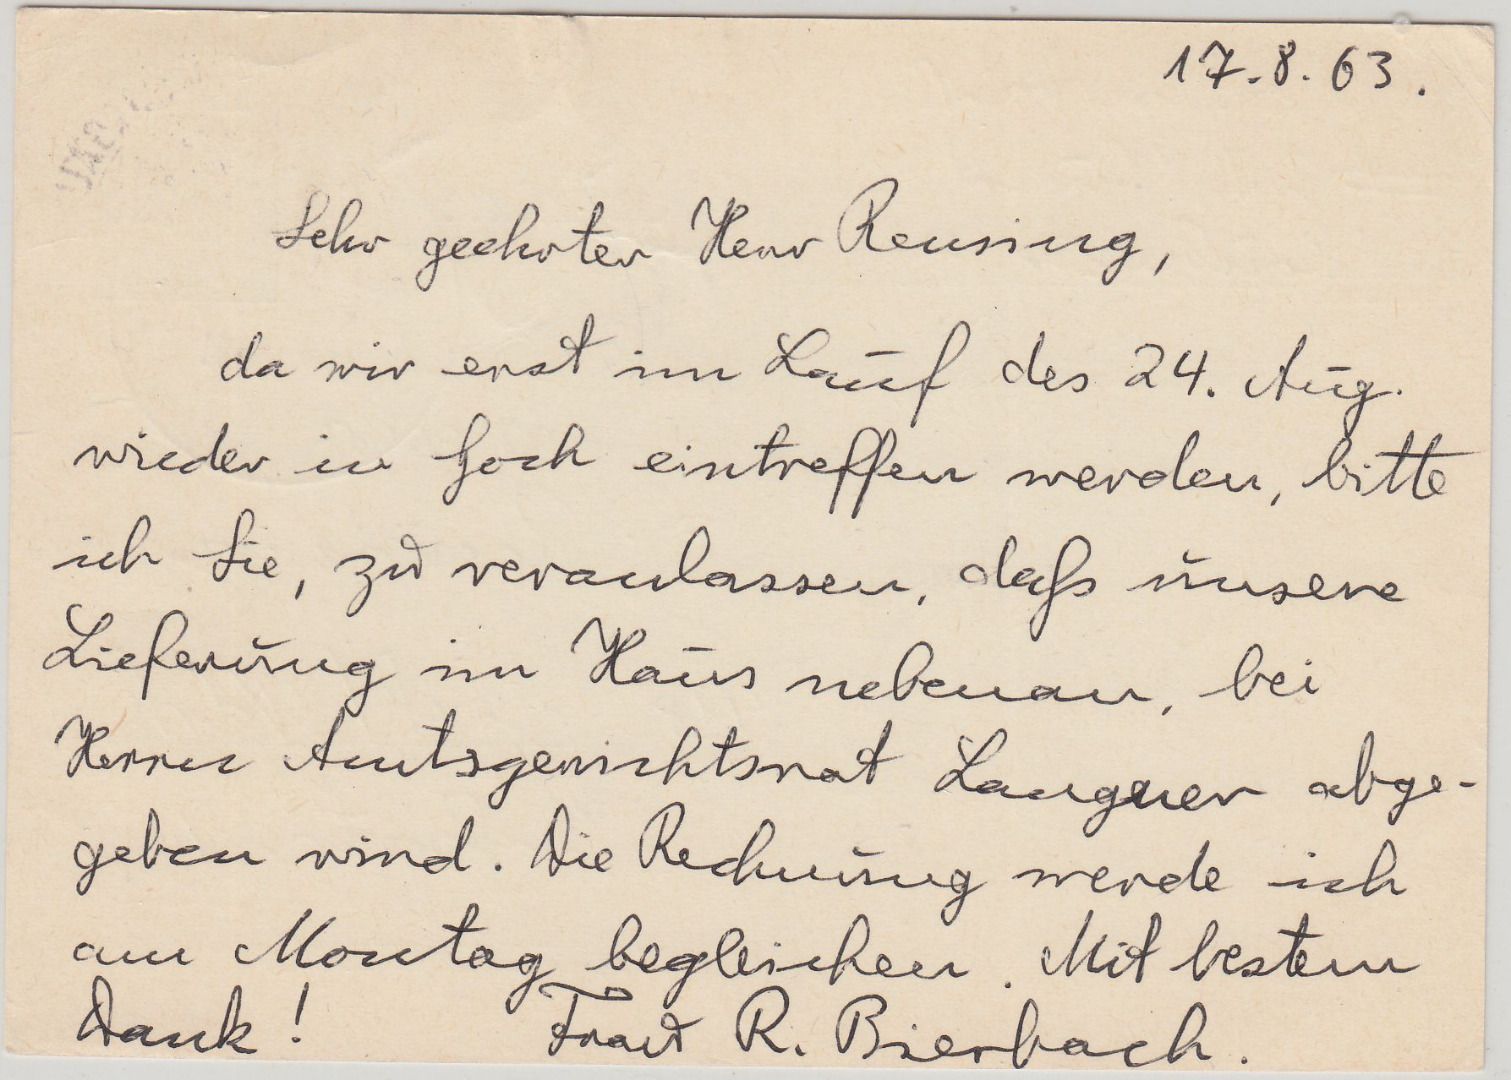 17.8.63.
Sehr geehrter Herr Reusing,
da wir erst im Lauf des 24. Aug.
wieder in Goch eintreffen werden, bitte
ich Sie, zu veranlassen, daß unsere
Lieferung im Haus nebenan, bei
Herrn Amtsgerichtsrat Langner abge-
geben wird. Die Rechnung werde ich
am Montag begleichen. Mit bestem
Dank! Frau R. Bierbach.